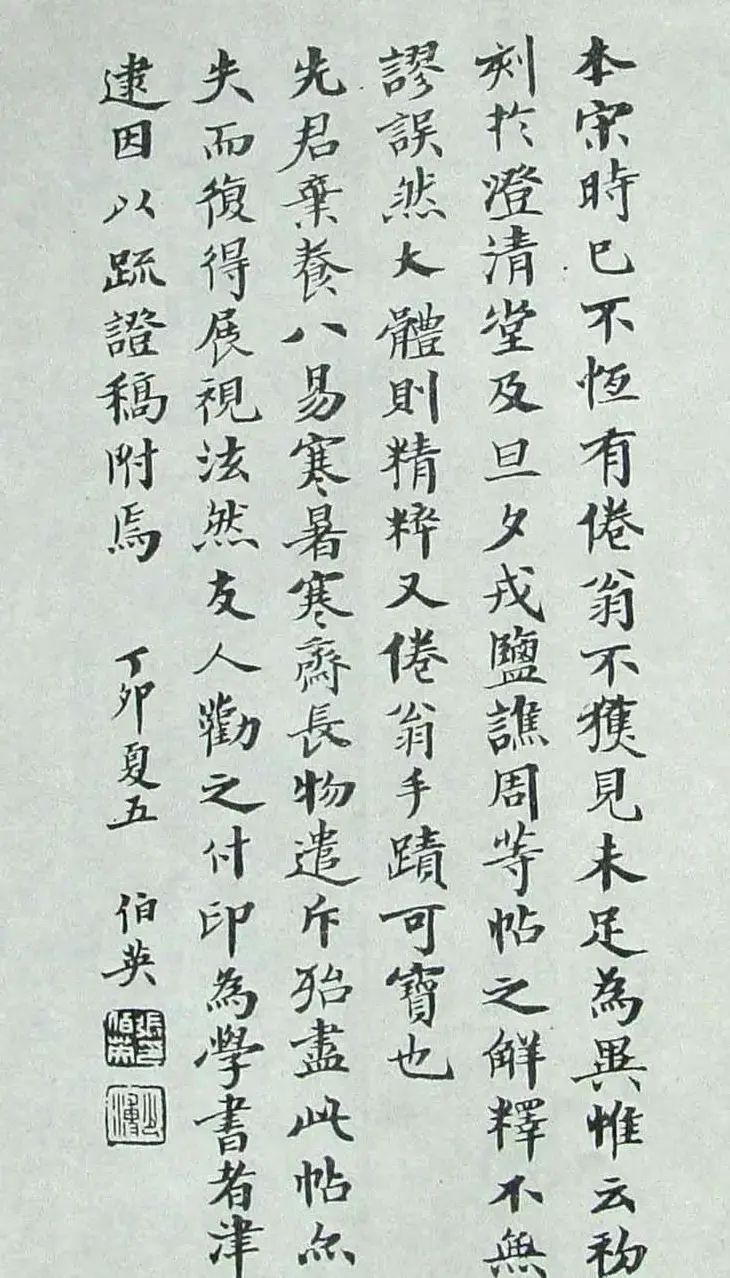 本宋時已不恆有倦翁不獲見未足為異惟云初
刻於澄清堂及旦夕戎鹽譙周等帖之解釋不無
謬誤然大體則精粹又倦翁手蹟可寶也
先君棄養八易寒暑寒齋長物遣斥殆盡此帖亦
失而復得展視泫然友人勸之付印為學書者津
逮因以疏證稿附焉
丁卯夏五 伯英
張伯英